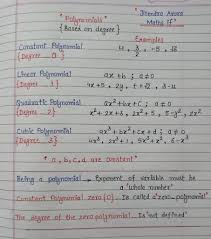 "Polynomials"
{Based on degree}
Jitendra Arora
Maths If
Examples
Constant Polynomial
{Degree _ 0}
Linear Polynomial
ax + b ; a≠0
{Degree _ 1}
4x+5, 2y,
Quadratic Polynomial
ax²+bx+c ; a≠0
{Degree _ 2}
Cubic Polynomial
ax³+bx²+cx+d ; a≠0
{Degree _ 3}
* a, b, c, d are constant *
Being a polynomial → Exponent of variable must be
a 'whole number'
Constant Polynomial zero {0} Is called a 'zero-polynomial'
The degree of the zero polynomial _ Is 'not defined'